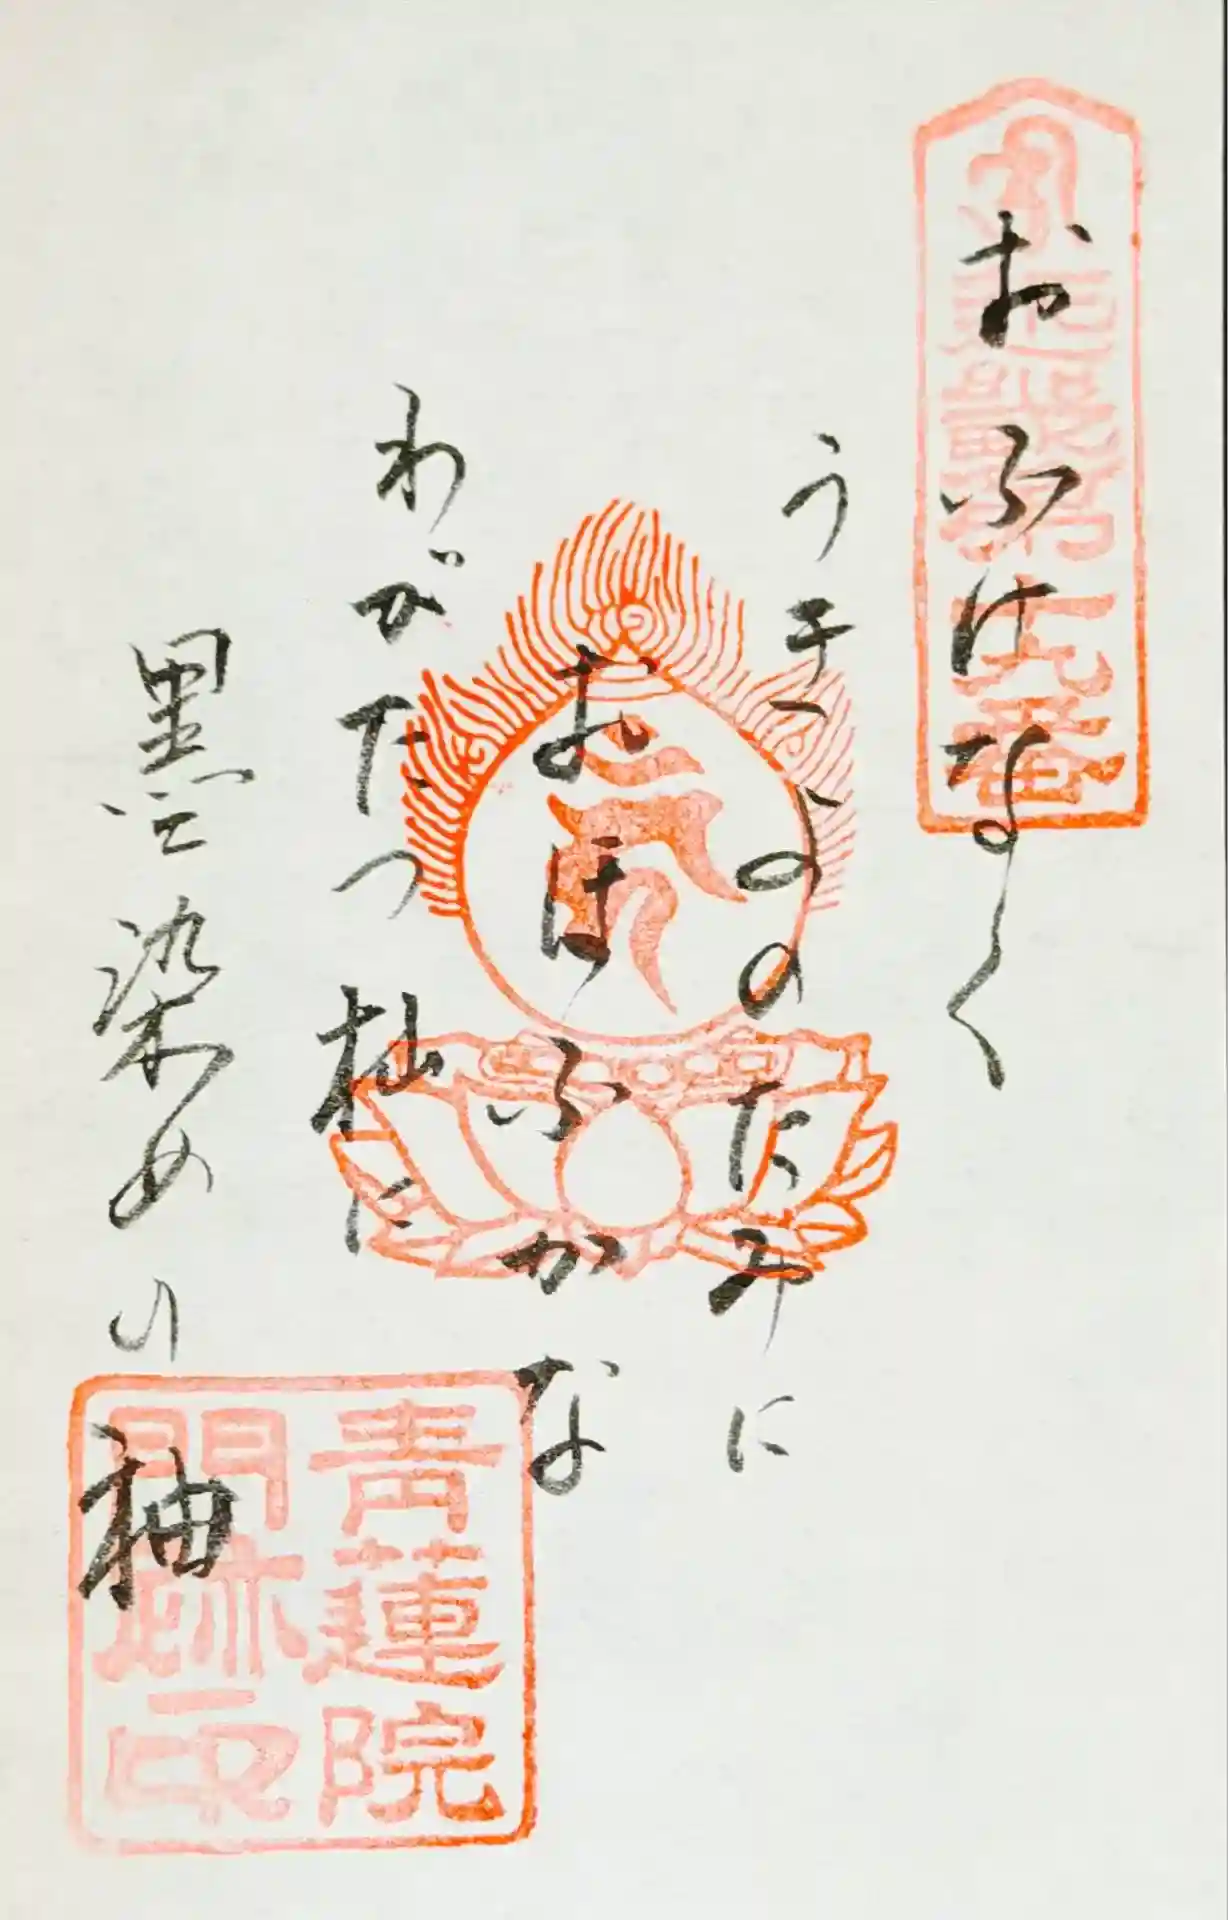 第十九番
おふけなく
うきよのたみに
おほふかな
わがたつ杣に
墨染めの袖
青蓮院
門跡印